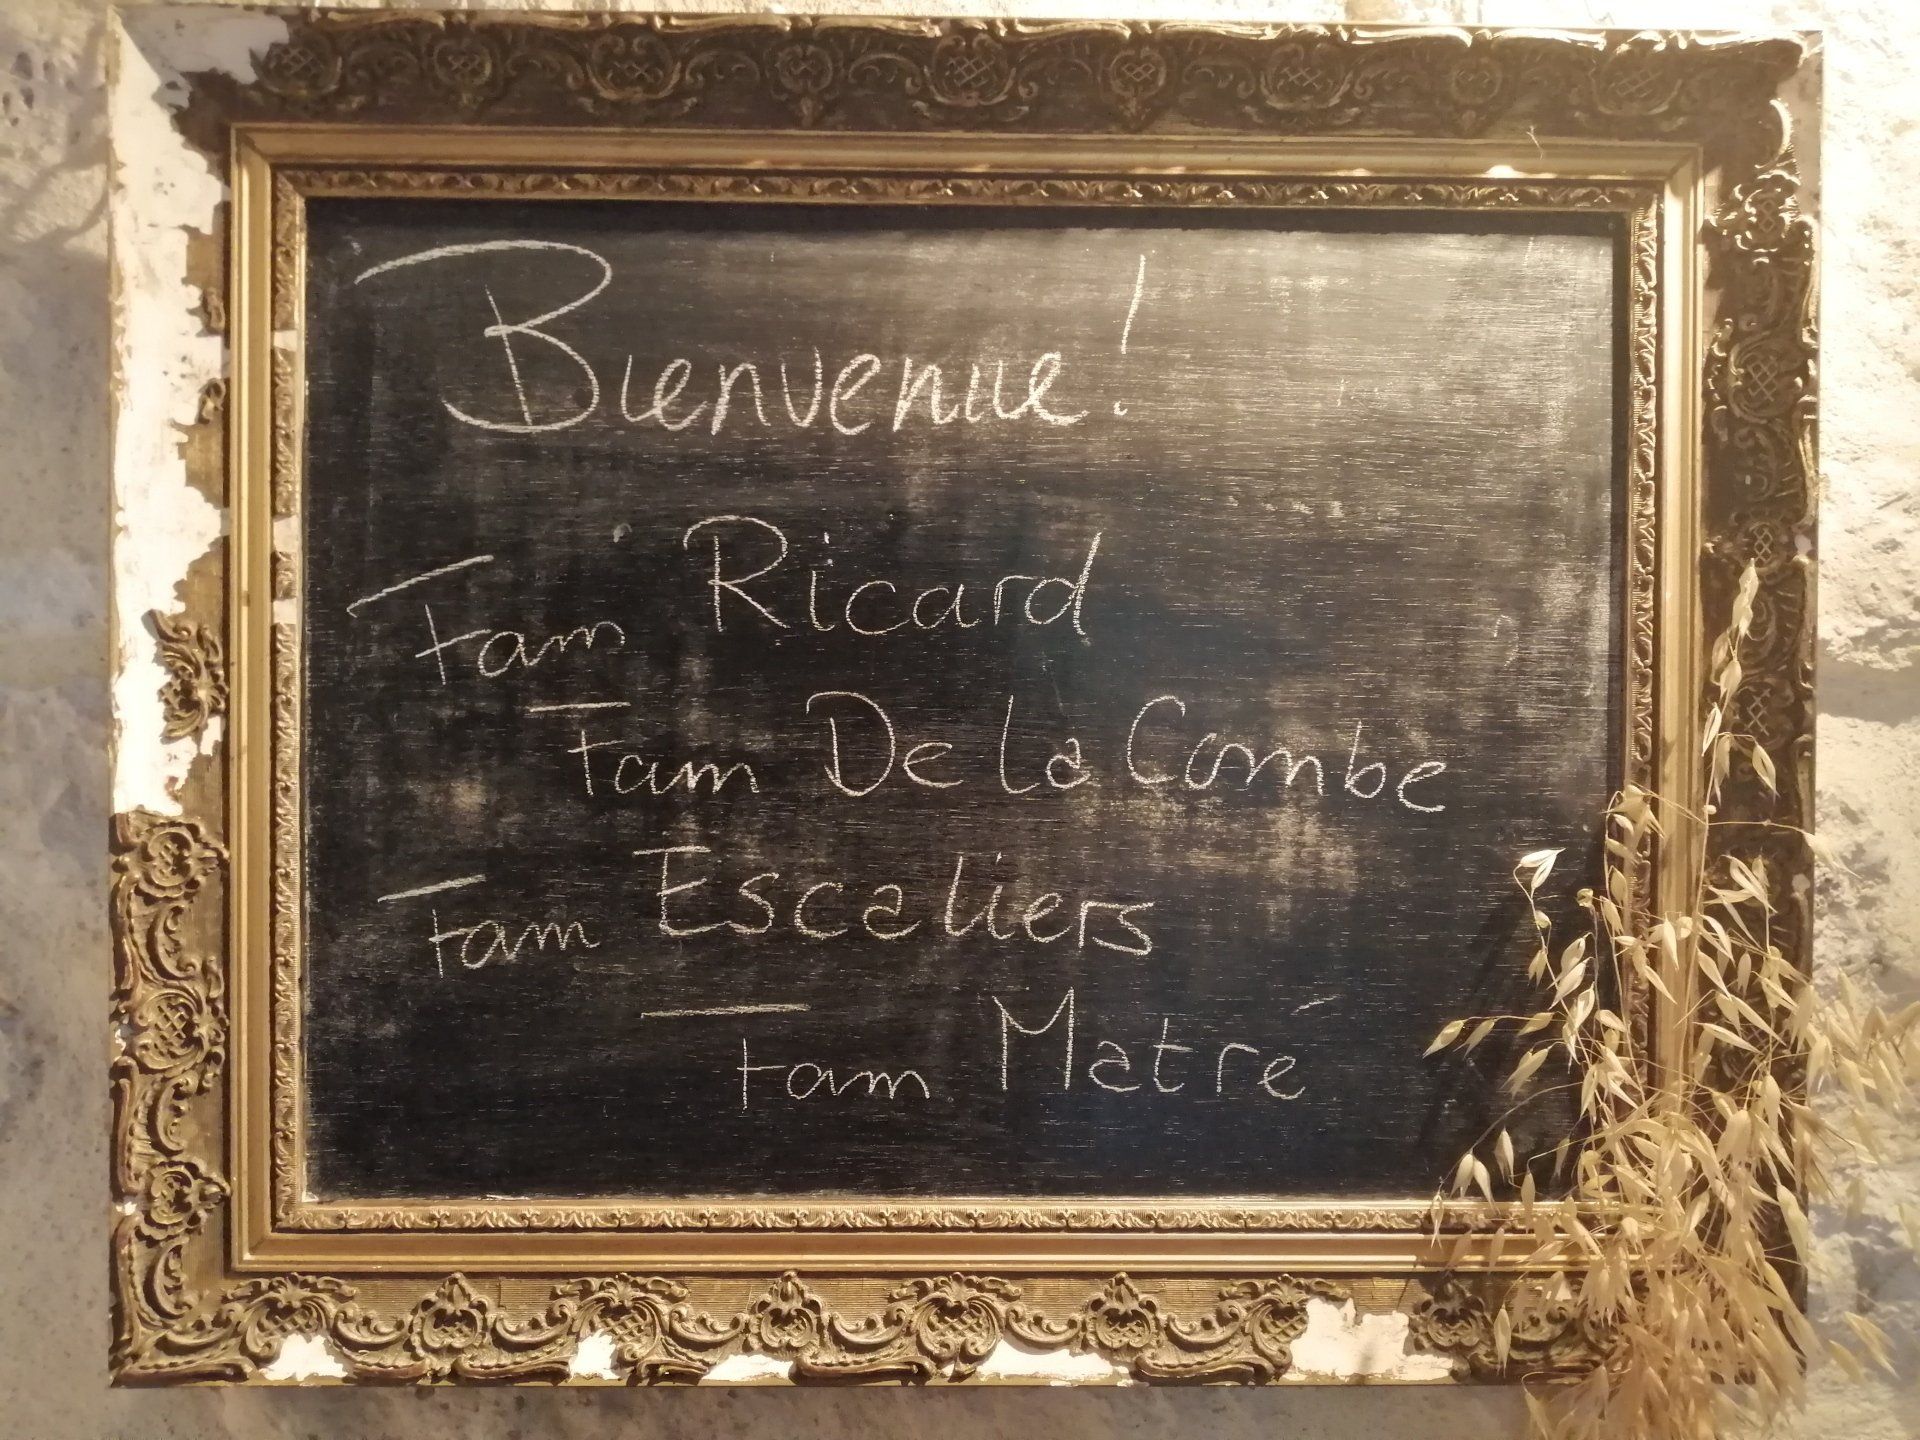 Bienvenue!
Fam Ricard
Fam De la Combe
Fam Escaliers
Fam Matré